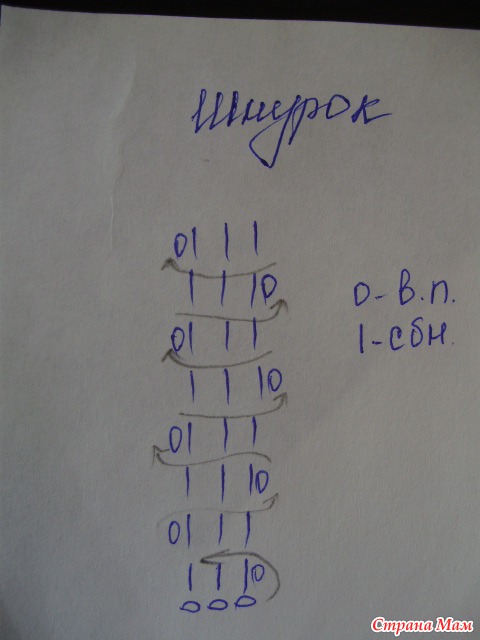 Шнурок
0| | |
| | |0
0| | |
| | |0
0| | |
| | |0
0| | |
| | |0
0 0 0
0 - в.п.
| - сбн.
Страна Мам